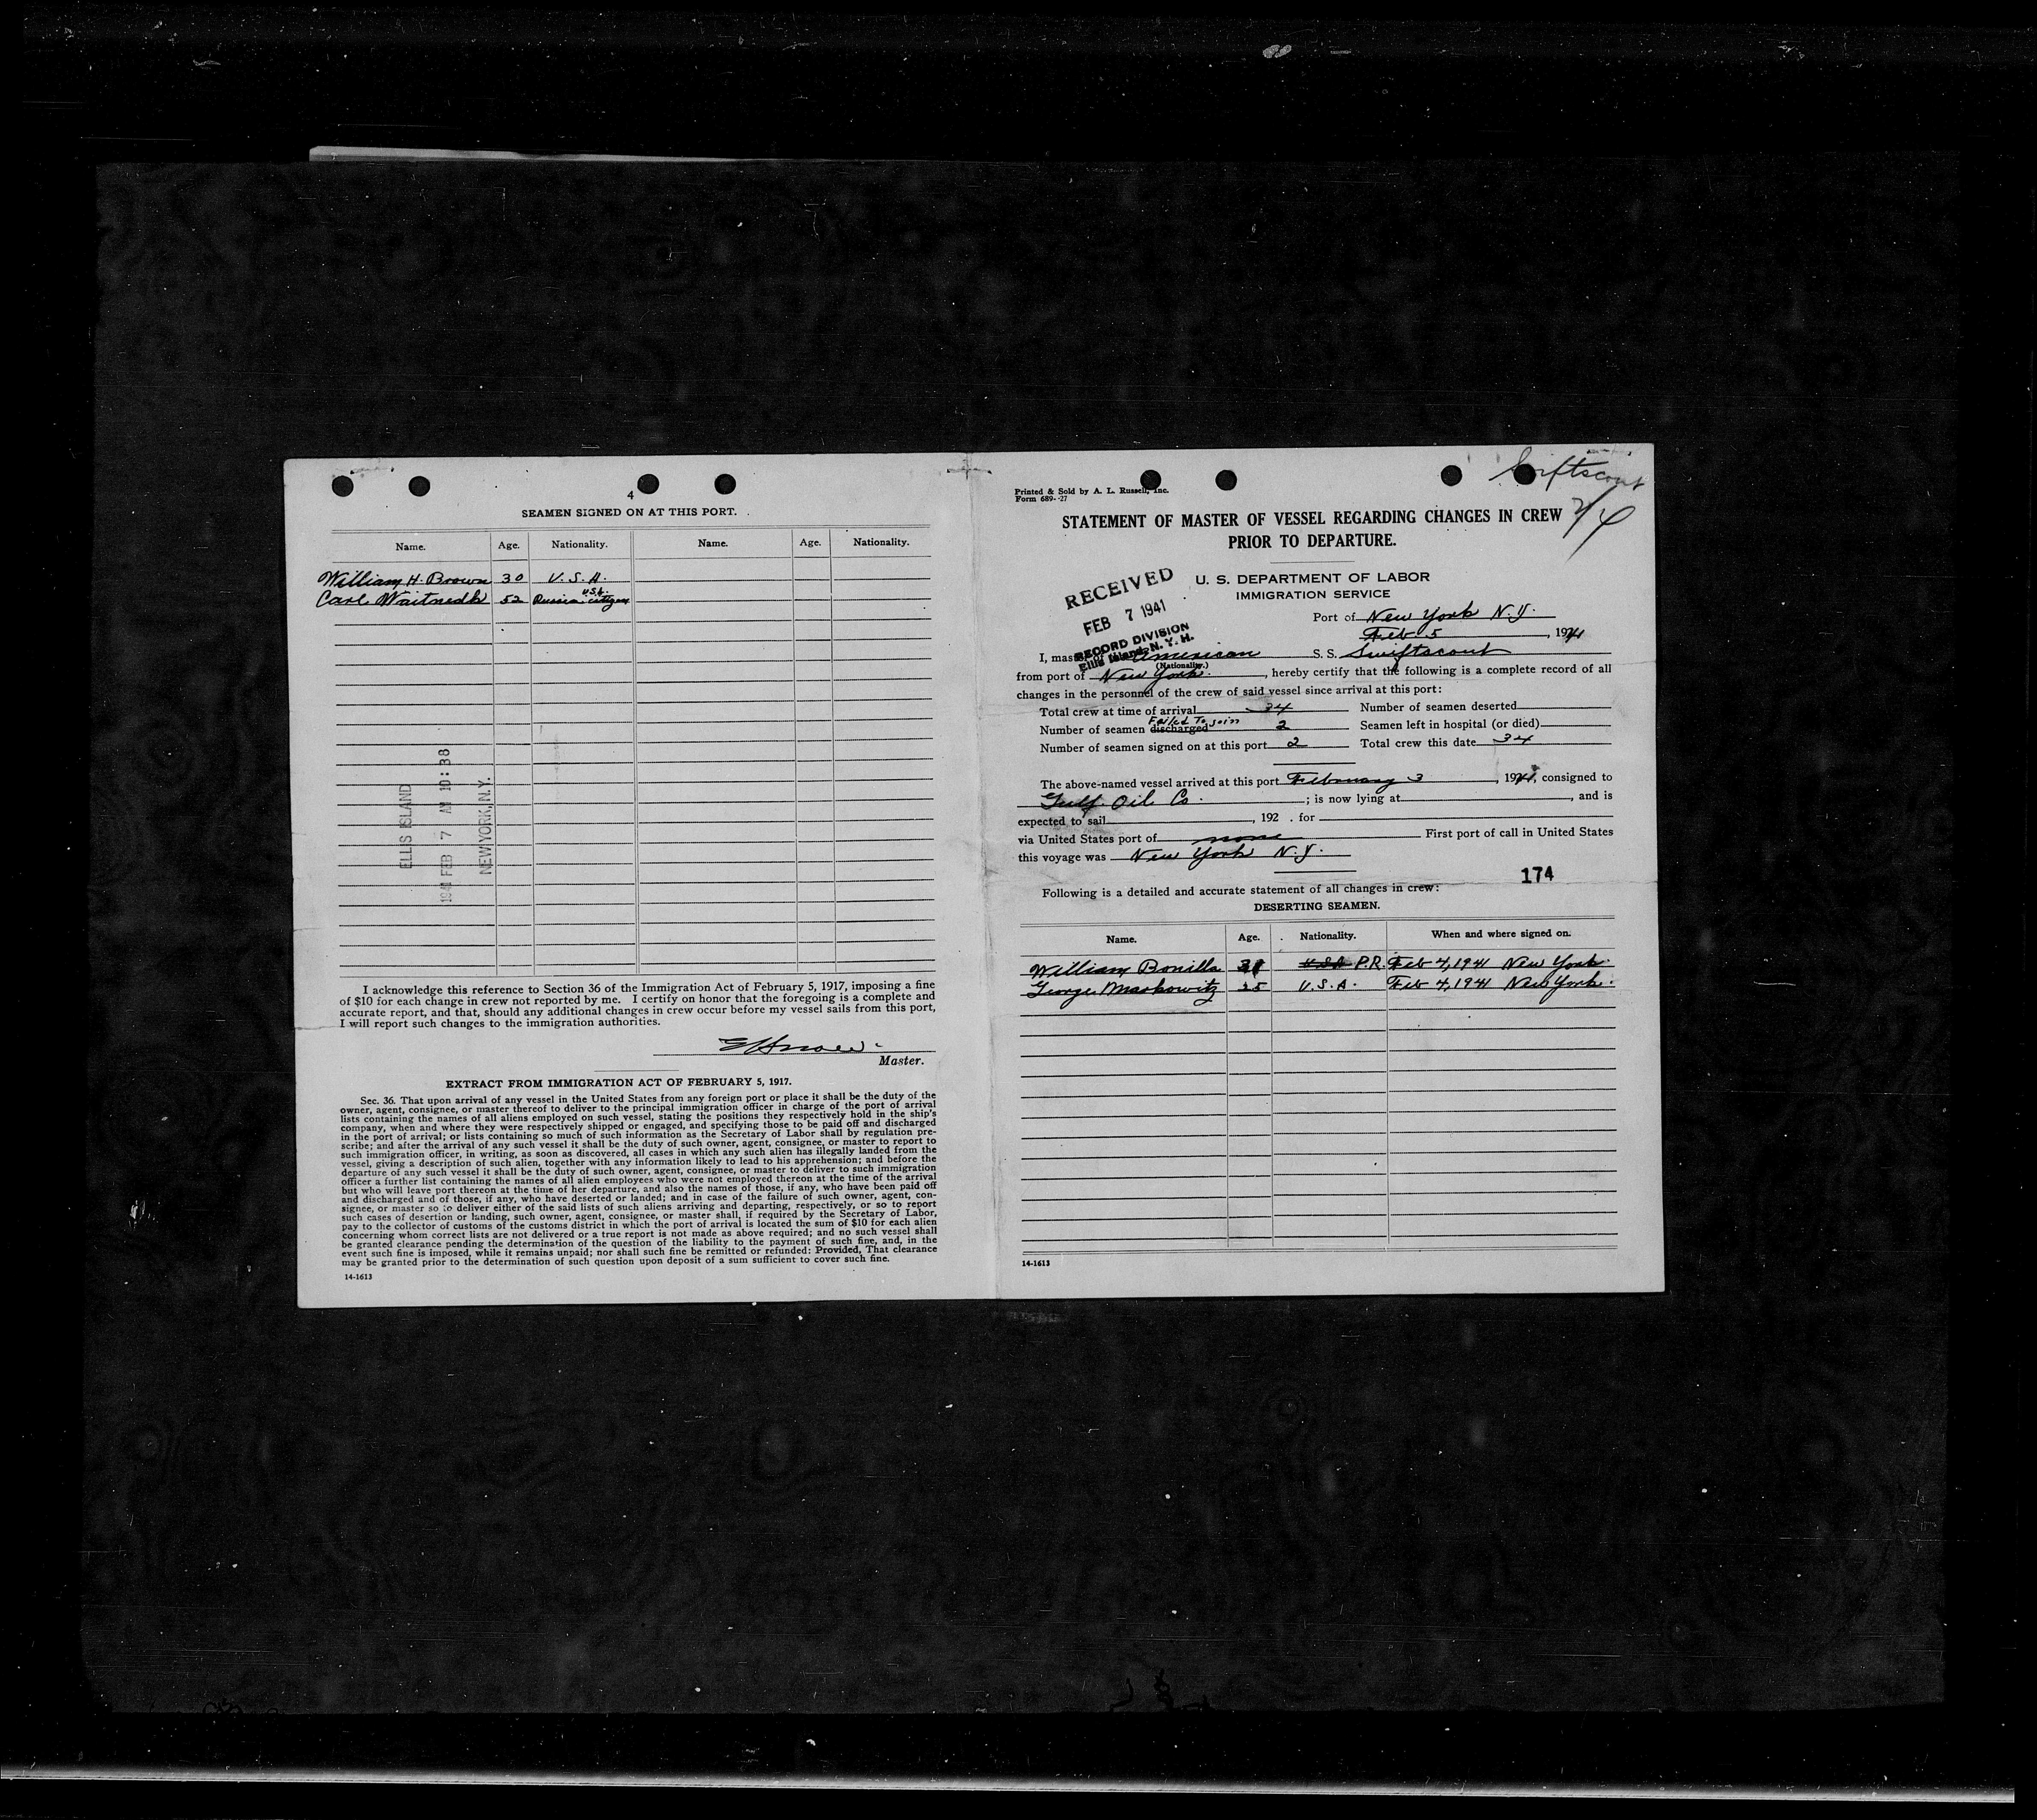 4
SEAMEN SIGNED ON AT THIS PORT.
Name. Age. Nationality. Name. Age. Nationality.
William H. Brown 30 U.S.A.
Carl Waitnedk 52 Russia U.S.A. citizen
ELLIS ISLAND
1941 FEB 7 AM 10:38
NEW YORK, N.Y.
I acknowledge this reference to Section 36 of the Immigration Act of February 5, 1917, imposing a fine
of $10 for each change in crew not reported by me. I certify on honor that the foregoing is a complete and
accurate report, and that, should any additional changes in crew occur before my vessel sails from this port,
I will report such changes to the immigration authorities.
Master.
EXTRACT FROM IMMIGRATION ACT OF FEBRUARY 5, 1917.
Sec. 36. That upon arrival of any vessel in the United States from any foreign port or place it shall be the duty of the
owner, agent, consignee, or master thereof to deliver to the principal immigration officer in charge of the port of arrival
lists containing the names of all aliens employed on such vessel, stating the positions they respectively hold in the ship's
company, when and where they were respectively shipped or engaged, and specifying those to be paid off and discharged
in the port of arrival; or lists containing so much of such information as the Secretary of Labor shall by regulation pre-
scribe; and after the arrival of any such vessel it shall be the duty of such owner, agent, consignee, or master to report to
such immigration officer, in writing, as soon as discovered, all cases in which any such alien has illegally landed from the
vessel, giving a description of such alien, together with any information likely to lead to his apprehension; and before the
departure of any such vessel it shall be the duty of such owner, agent, consignee, or master to deliver to such immigration
officer a further list containing the names of all alien employees who were not employed thereon at the time of the arrival
but who will leave port thereon at the time of her departure, and also the names of those, if any, who have been paid off
and discharged and of those, if any, who have deserted or landed; and in case of the failure of such owner, agent, con-
signee, or master so to deliver either of the said lists of such aliens arriving and departing, respectively, or so to report
such cases of desertion or landing, such owner, agent, consignee, or master shall, if required by the Secretary of Labor,
pay to the collector of customs of the customs district in which the port of arrival is located the sum of $10 for each alien
concerning whom correct lists are not delivered or a true report is not made as above required; and no such vessel shall
be granted clearance pending the determination of the question of the liability to the payment of such fine, and, in the
event such fine is imposed, while it remains unpaid; nor shall such fine be remitted or refunded: Provided, That clearance
may be granted prior to the determination of such question upon deposit of a sum sufficient to cover such fine.
14-1613
Swiftscout
2/4
Printed & Sold by A. L. Russell, Inc.
Form 689--27
STATEMENT OF MASTER OF VESSEL REGARDING CHANGES IN CREW
PRIOR TO DEPARTURE.
U. S. DEPARTMENT OF LABOR
IMMIGRATION SERVICE
RECEIVED
FEB 7 1941
RECORD DIVISION
Ellis Island, N. Y. H.
Port of New York N.Y.
Feb 5, 1941
I, master of American S. S. Swiftscout
(Nationality.)
from port of New York., hereby certify that the following is a complete record of all
changes in the personnel of the crew of said vessel since arrival at this port:
Total crew at time of arrival 34 Number of seamen deserted
Failed To join
Number of seamen discharged 2 Seamen left in hospital (or died)
Number of seamen signed on at this port 2 Total crew this date 34
The above-named vessel arrived at this port February 3, 1941, consigned to
Gulf Oil Co.; is now lying at , and is
expected to sail , 192 . for
via United States port of none First port of call in United States
this voyage was New York N.Y.
174
Following is a detailed and accurate statement of all changes in crew:
DESERTING SEAMEN.
Name. Age. Nationality. When and where signed on.
William Bonilla 31 U.S.A. P.R. Feb 4, 1941 New York.
George Markowitz 25 U.S.A. Feb 4, 1941 New York.
14-1613